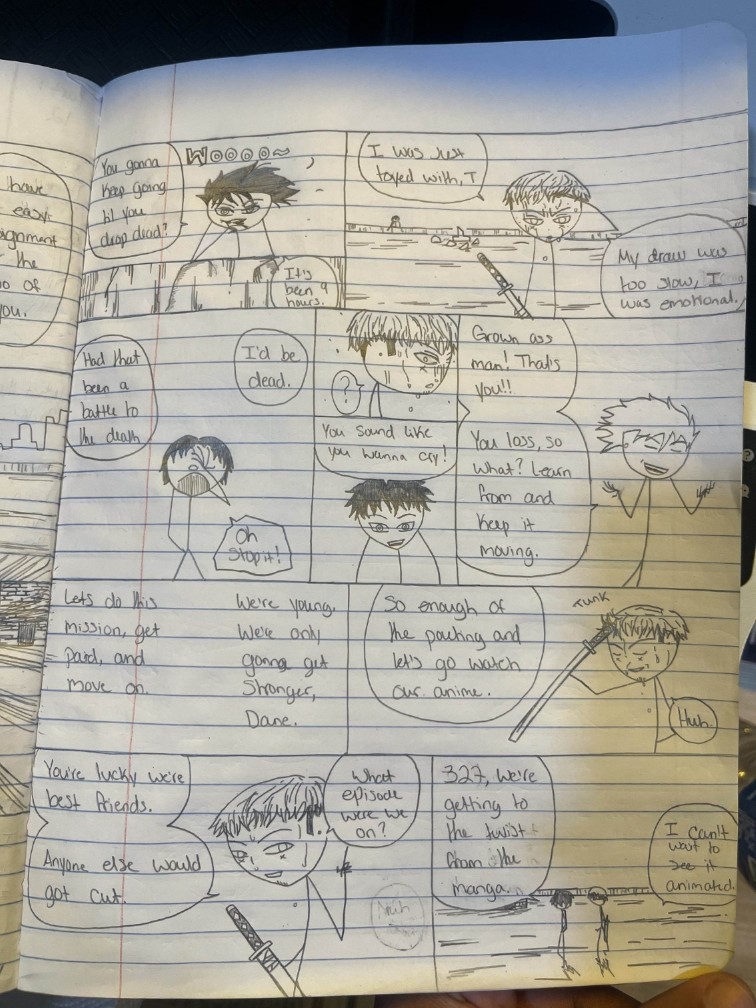 have
easy.
signment
the
o of
you.
You gonna
keep going
til you
drop dead?
Woooo~
It's
been 9
hours.
I was just
toyed with, T
My draw was
too slow, I
was emotional.
Had that
been a
battle to
the death
I'd be
dead.
Oh
stop it!
?
You sound like
you wanna cry!
Grown ass
man! Thats
you!!
You loss, so
what? Learn
from and
keep it
moving.
Lets do this
mission, get
paid, and
move on.
We're young.
We're only
gonna get
Stronger,
Dane.
So enough of
the pouting and
let's go watch
our anime.
TUNK
Huh.
You're lucky we're
best friends.
Anyone else would
got cut.
What
episode
were we
on?
327, we're
getting to
the twist
from the
manga.
I can't
wait to
see it
animated.